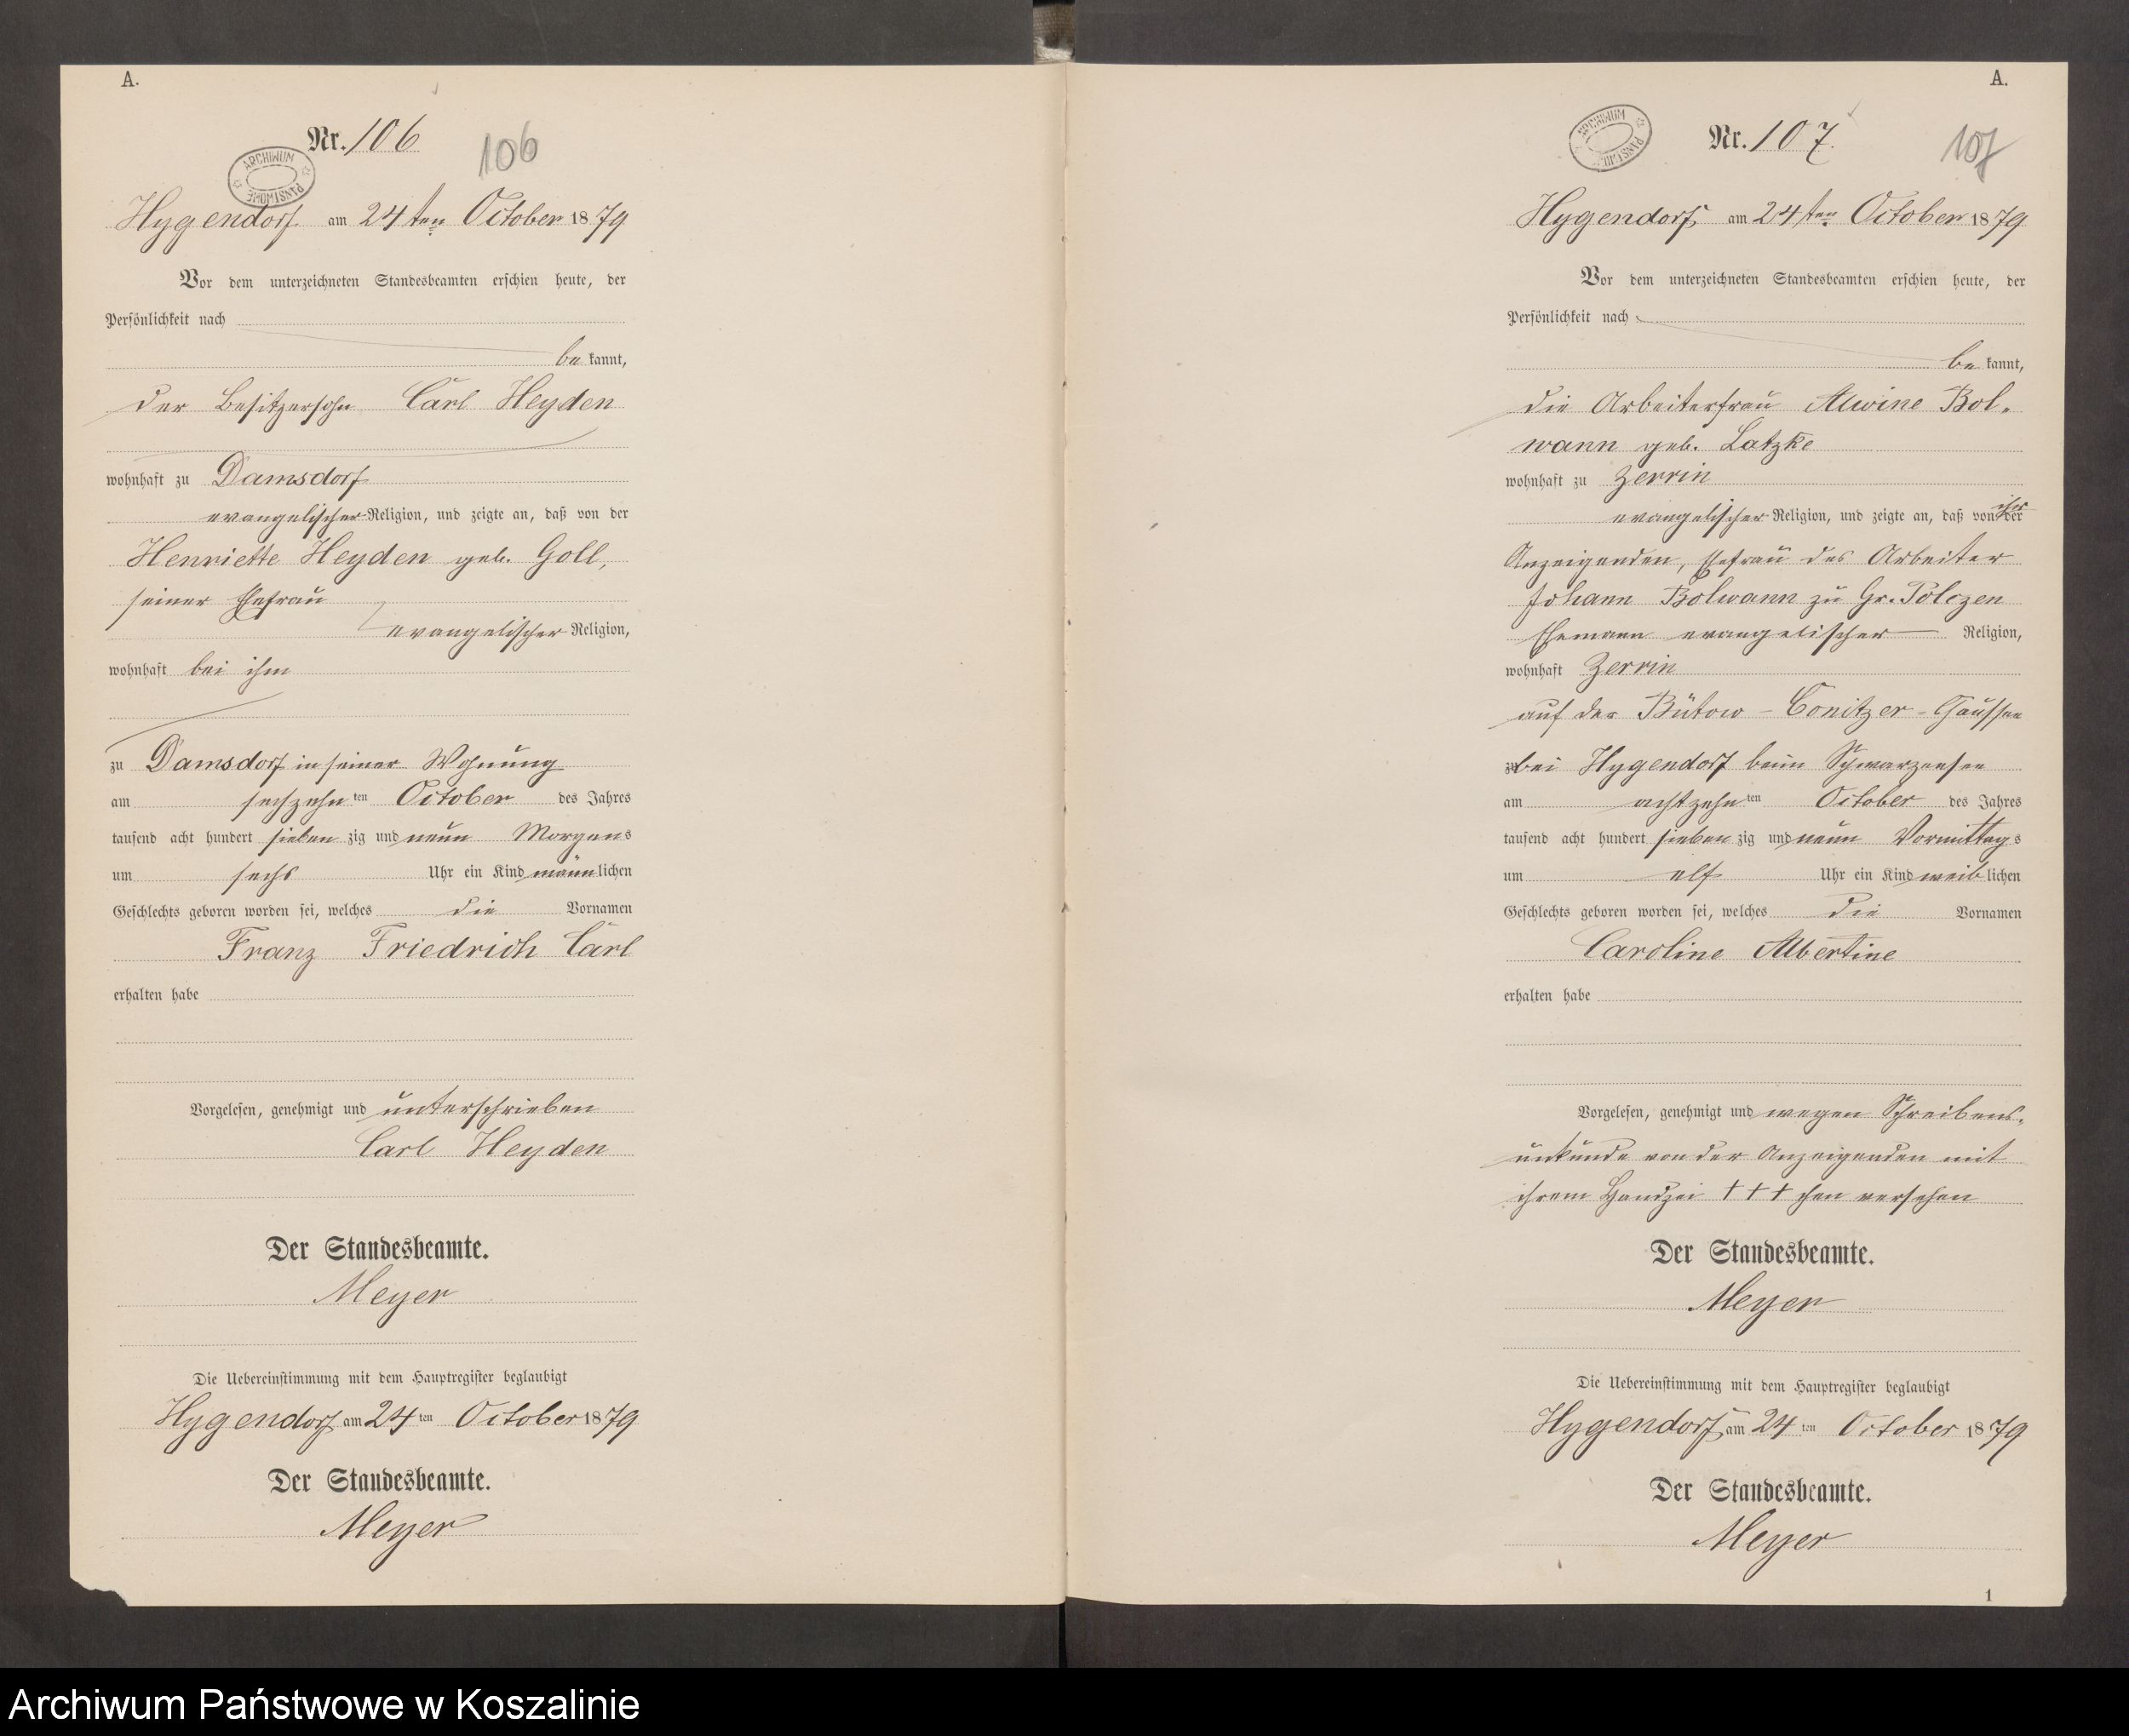 A.
Nr. 106
106
ARCHIWUM PAŃSTWOWE
Hygendorf am 24ten October 1879
Vor dem unterzeichneten Standesbeamten erschien heute, der
Persönlichkeit nach
be kannt,
der Besitzersohn Carl Heyden
wohnhaft zu Damsdorf
evangelischer Religion, und zeigte an, daß von der
Henriette Heyden geb. Goll,
seiner Ehefrau
evangelischer Religion,
wohnhaft bei ihm
zu Damsdorf in seiner Wohnung
am sechzehn ten October des Jahres
tausend acht hundert sieben zig und neun Morgens
um sechs Uhr ein Kind männlichen
Geschlechts geboren worden sei, welches die Vornamen
Franz Friedrich Carl
erhalten habe
Vorgelesen, genehmigt und unterschrieben
Carl Heyden
Der Standesbeamte.
Meyer
Die Uebereinstimmung mit dem Hauptregister beglaubigt
Hygendorf am 24 ten October 1879
Der Standesbeamte.
Meyer
A.
ARCHIWUM PAŃSTWOWE
Nr. 107.
107
Hygendorf am 24ten October 1879
Vor dem unterzeichneten Standesbeamten erschien heute, der
Persönlichkeit nach
be kannt,
die Arbeiterfrau Alwine Bol-
wann geb. Latzke
wohnhaft zu Zerrin
evangelischer Religion, und zeigte an, daß von der ihr
Anzeigenden, Ehefrau des Arbeiter
Johann Bolwann zu Gr. Polczen
Ehemann evangelischer Religion,
wohnhaft Zerrin
auf der Bütow - Conitzer - Chaussee
zu bei Hygendorf beim Schwarzensee
am achtzehn ten October des Jahres
tausend acht hundert sieben zig und neun Vormittags
um elf Uhr ein Kind weiblichen
Geschlechts geboren worden sei, welches die Vornamen
Caroline Albertine
erhalten habe
Vorgelesen, genehmigt und wegen Schreibens-
unkunde von der Anzeigenden mit
ihrem Handzei +++ chen versehen
Der Standesbeamte.
Meyer
Die Uebereinstimmung mit dem Hauptregister beglaubigt
Hygendorf am 24 ten October 1879
Der Standesbeamte.
Meyer
1
Archiwum Państwowe w Koszalinie